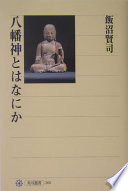 飯沼賢司
八幡神とはなにか
角川選書